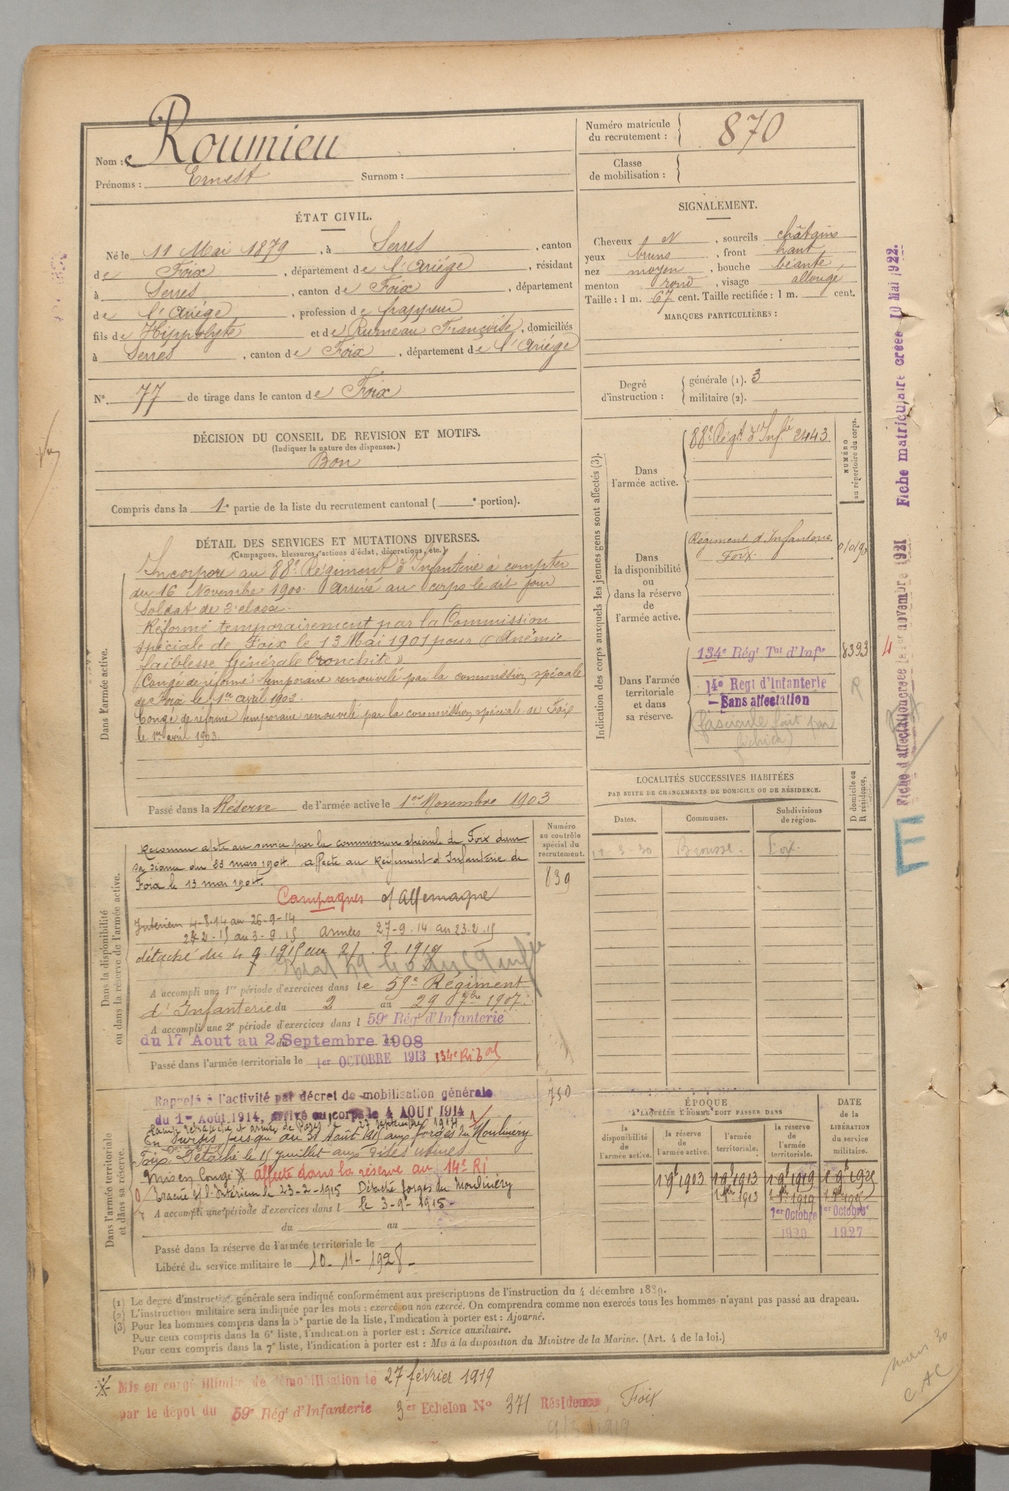 Nom : Roumieu
Prénoms : Ernest Surnom :
Numéro matricule du recrutement : 870
Classe de mobilisation :
ÉTAT CIVIL.
Né le 11 Mai 1879, à Serres, canton
de Foix, département de l'Ariège, résidant
à Serres, canton de Foix, département
de l'Ariège, profession de frappeur
fils de Hippolyte et de Rumeau Françoise, domiciliés
à Serres, canton de Foix, département de l'Ariège
N° 77 de tirage dans le canton de Foix
SIGNALEMENT.
Cheveux N, sourcils châtains
yeux bruns, front haut
nez moyen, bouche béante,
menton rond, visage allongé
Taille : 1 m. 67 cent. Taille rectifiée : 1 m. cent.
MARQUES PARTICULIÈRES :
Degré d'instruction : générale (1). 3
militaire (2).
DÉCISION DU CONSEIL DE REVISION ET MOTIFS.
(Indiquer la nature des dispenses.)
Bon
Compris dans la 1e partie de la liste du recrutement cantonal ( e portion).
DÉTAIL DES SERVICES ET MUTATIONS DIVERSES.
(Campagnes, blessures, actions d'éclat, décorations, etc.)
Dans l'armée active.
Incorporé au 88e Régiment d'Infanterie à compter
du 16 Novembre 1900. Arrivé au corps le dit jour
Soldat de 2e classe.
Réformé temporairement par la Commission
spéciale de Foix le 13 Mai 1901 pour (Anémie
faiblesse générale bronchite)
(Congé de réforme temporaire renouvelé par la commission spéciale
de Foix le 1er avril 1902.
Congé de réforme temporaire renouvelé par la commission spéciale de Foix
le 1er avril 1903.
Passé dans la Réserve de l'armée active le 1er Novembre 1903
Indication des corps auxquels les jeunes gens sont affectés (3).
NUMÉRO au répertoire du corps.
Dans l'armée active.
88e Régt d'Infie 2443
Dans la disponibilité ou dans la réserve de l'armée active.
Régiment d'Infanterie
Foix.
Dans l'armée territoriale et dans sa réserve.
134e Régt Tal d'Infie 8393
14e Regt d'Infanterie
— Sans affectation
R
LOCALITÉS SUCCESSIVES HABITÉES
PAR SUITE DE CHANGEMENTS DE DOMICILE OU DE RÉSIDENCE.
D domicile ou R résidence.
Dates. Communes. Subdivisions de région.
Brousse Foix
Dans la disponibilité ou dans la réserve de l'armée active.
Numéro au contrôle spécial du recrutement.
139
Reconnu apte au service par la commission spéciale de Foix dans
sa séance du 23 mars 1904. Affecté au Régiment d'Infanterie de
Foix le 13 mai 1904.
Campagnes c/ Allemagne
Intérieur 4-8-14 au 26-9-14
armées 27-9-14 au 23.2.15
A accompli une 1re période d'exercices dans le 59e Régiment
d'Infanterie du 2 au 29 1907.
A accompli une 2e période d'exercices dans l 59e Rég d'Infanterie
du 17 Aout au 2 Septembre 1908
Passé dans l'armée territoriale le 1er OCTOBRE 1913
Dans l'armée territoriale et dans sa réserve.
750
Rappelé à l'activité par décret de mobilisation générale
du 1er Août 1914, arrivé au corps le 4 AOUT 1914
En sursis jusqu'au 31 Août 1915 aux forges du Moulinéry
Foix. Détaché le 15 juillet aux dites usines
Mis en congé X affecté dans la réserve au 14e RI
Évacué s/ l'intérieur le 23-2-1915 Détaché forges du Moulinéry
A accompli une période d'exercices dans l le 3-9-1915-
du au
Passé dans la réserve de l'armée territoriale le
Libéré du service militaire le 10-11-1928-
ÉPOQUE
A LAQUELLE L'HOMME DOIT PASSER DANS
DATE de la LIBÉRATION du service militaire.
la disponibilité de l'armée active.
la réserve de l'armée active.
l'armée territoriale.
la réserve de l'armée territoriale.
1 9bre 1903 1 9bre 1913 1 9bre 1919 1 9bre 1925
1er Octobre 1er Octobre
1920 1927
(1) Le degré d'instruction générale sera indiqué conformément aux prescriptions de l'instruction du 4 décembre 1889.
(2) L'instruction militaire sera indiquée par les mots : exercé ou non exercé. On comprendra comme non exercés tous les hommes n'ayant pas passé au drapeau.
(3) Pour les hommes compris dans la 5e partie de la liste, l'indication à porter est : Ajourné.
Pour ceux compris dans la 6e liste, l'indication à porter est : Service auxiliaire.
Pour ceux compris dans la 7e liste, l'indication à porter est : Mis à la disposition du Ministre de la Marine. (Art. 4 de la loi.)
X Mis en congé illimité de démobilisation le 27 février 1919
par le dépot du 59e Rég' d'Infanterie 3er Echelon N° 371 Résidence, Foix
Fiche matriculaire créée 10 Mai 1922.
Fiche d'affectation créée le novembre 1921